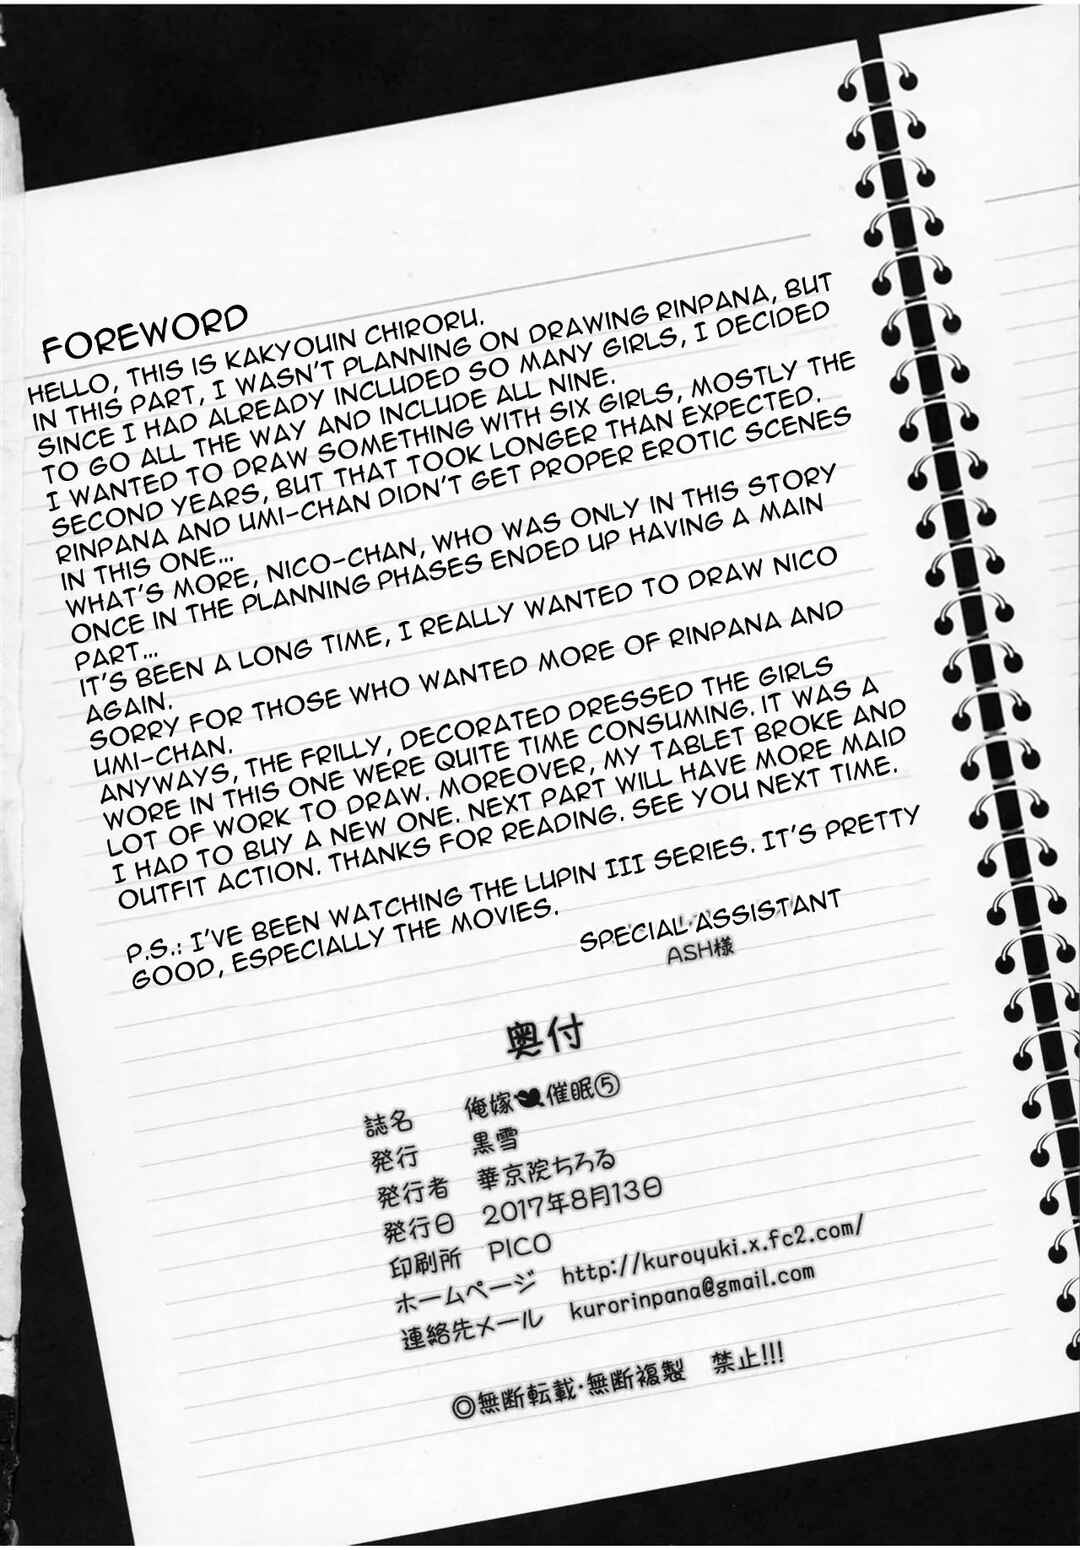 FOREWORD
HELLO, THIS IS KAKYOUIN CHIRORU.
IN THIS PART, I WASN'T PLANNING ON DRAWING RINPANA, BUT
SINCE I HAD ALREADY INCLUDED SO MANY GIRLS, I DECIDED
TO GO ALL THE WAY AND INCLUDE ALL NINE.
I WANTED TO DRAW SOMETHING WITH SIX GIRLS, MOSTLY THE
SECOND YEARS, BUT THAT TOOK LONGER THAN EXPECTED.
RINPANA AND UMI-CHAN DIDN'T GET PROPER EROTIC SCENES
IN THIS ONE...
WHAT'S MORE, NICO-CHAN, WHO WAS ONLY IN THIS STORY
ONCE IN THE PLANNING PHASES ENDED UP HAVING A MAIN
PART...
IT'S BEEN A LONG TIME, I REALLY WANTED TO DRAW NICO
AGAIN.
SORRY FOR THOSE WHO WANTED MORE OF RINPANA AND
UMI-CHAN.
ANYWAYS, THE FRILLY, DECORATED DRESSED THE GIRLS
WORE IN THIS ONE WERE QUITE TIME CONSUMING. IT WAS A
LOT OF WORK TO DRAW. MOREOVER, MY TABLET BROKE AND
I HAD TO BUY A NEW ONE. NEXT PART WILL HAVE MORE MAID
OUTFIT ACTION. THANKS FOR READING. SEE YOU NEXT TIME.
P.S.: I'VE BEEN WATCHING THE LUPIN III SERIES. IT'S PRETTY
GOOD, ESPECIALLY THE MOVIES.
SPECIAL ASSISTANT
ASH様
奥付
誌名 俺嫁催眠⑤
発行 黒雪
発行者 華京院ちろる
発行日 2017年8月13日
印刷所 PICO
ホームページ http://kuroyuki.x.fc2.com/
連絡先メール kurorinpana@gmail.com
◎無断転載・無断複製 禁止!!!